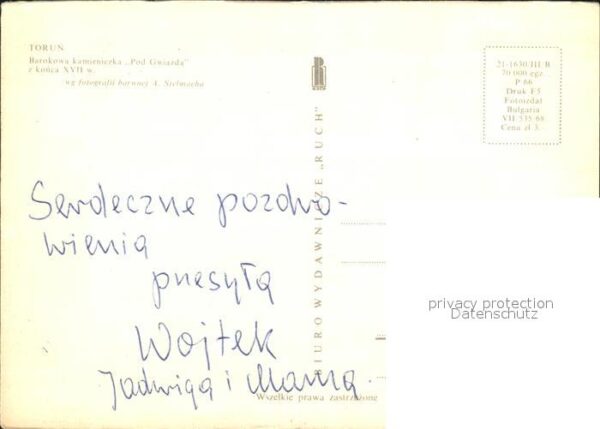 TORUŃ
Barokowa kamieniczka „Pod Gwiazdą"
z końca XVII w.
wg fotografii barwnej A. Stelmacha
BIURO WYDAWNICZE „RUCH"
21-1630/III R
70 000 egz.
P 66
Druk F5
Fotoizdat
Bulgaria
VII-535/68
Cena zł 3.-
Serdeczne pozdro-
wienia
przesyła
Wojtek
Jadwiga i Mama.
Wszelkie prawa zastrzeżone
privacy protection
Datenschutz